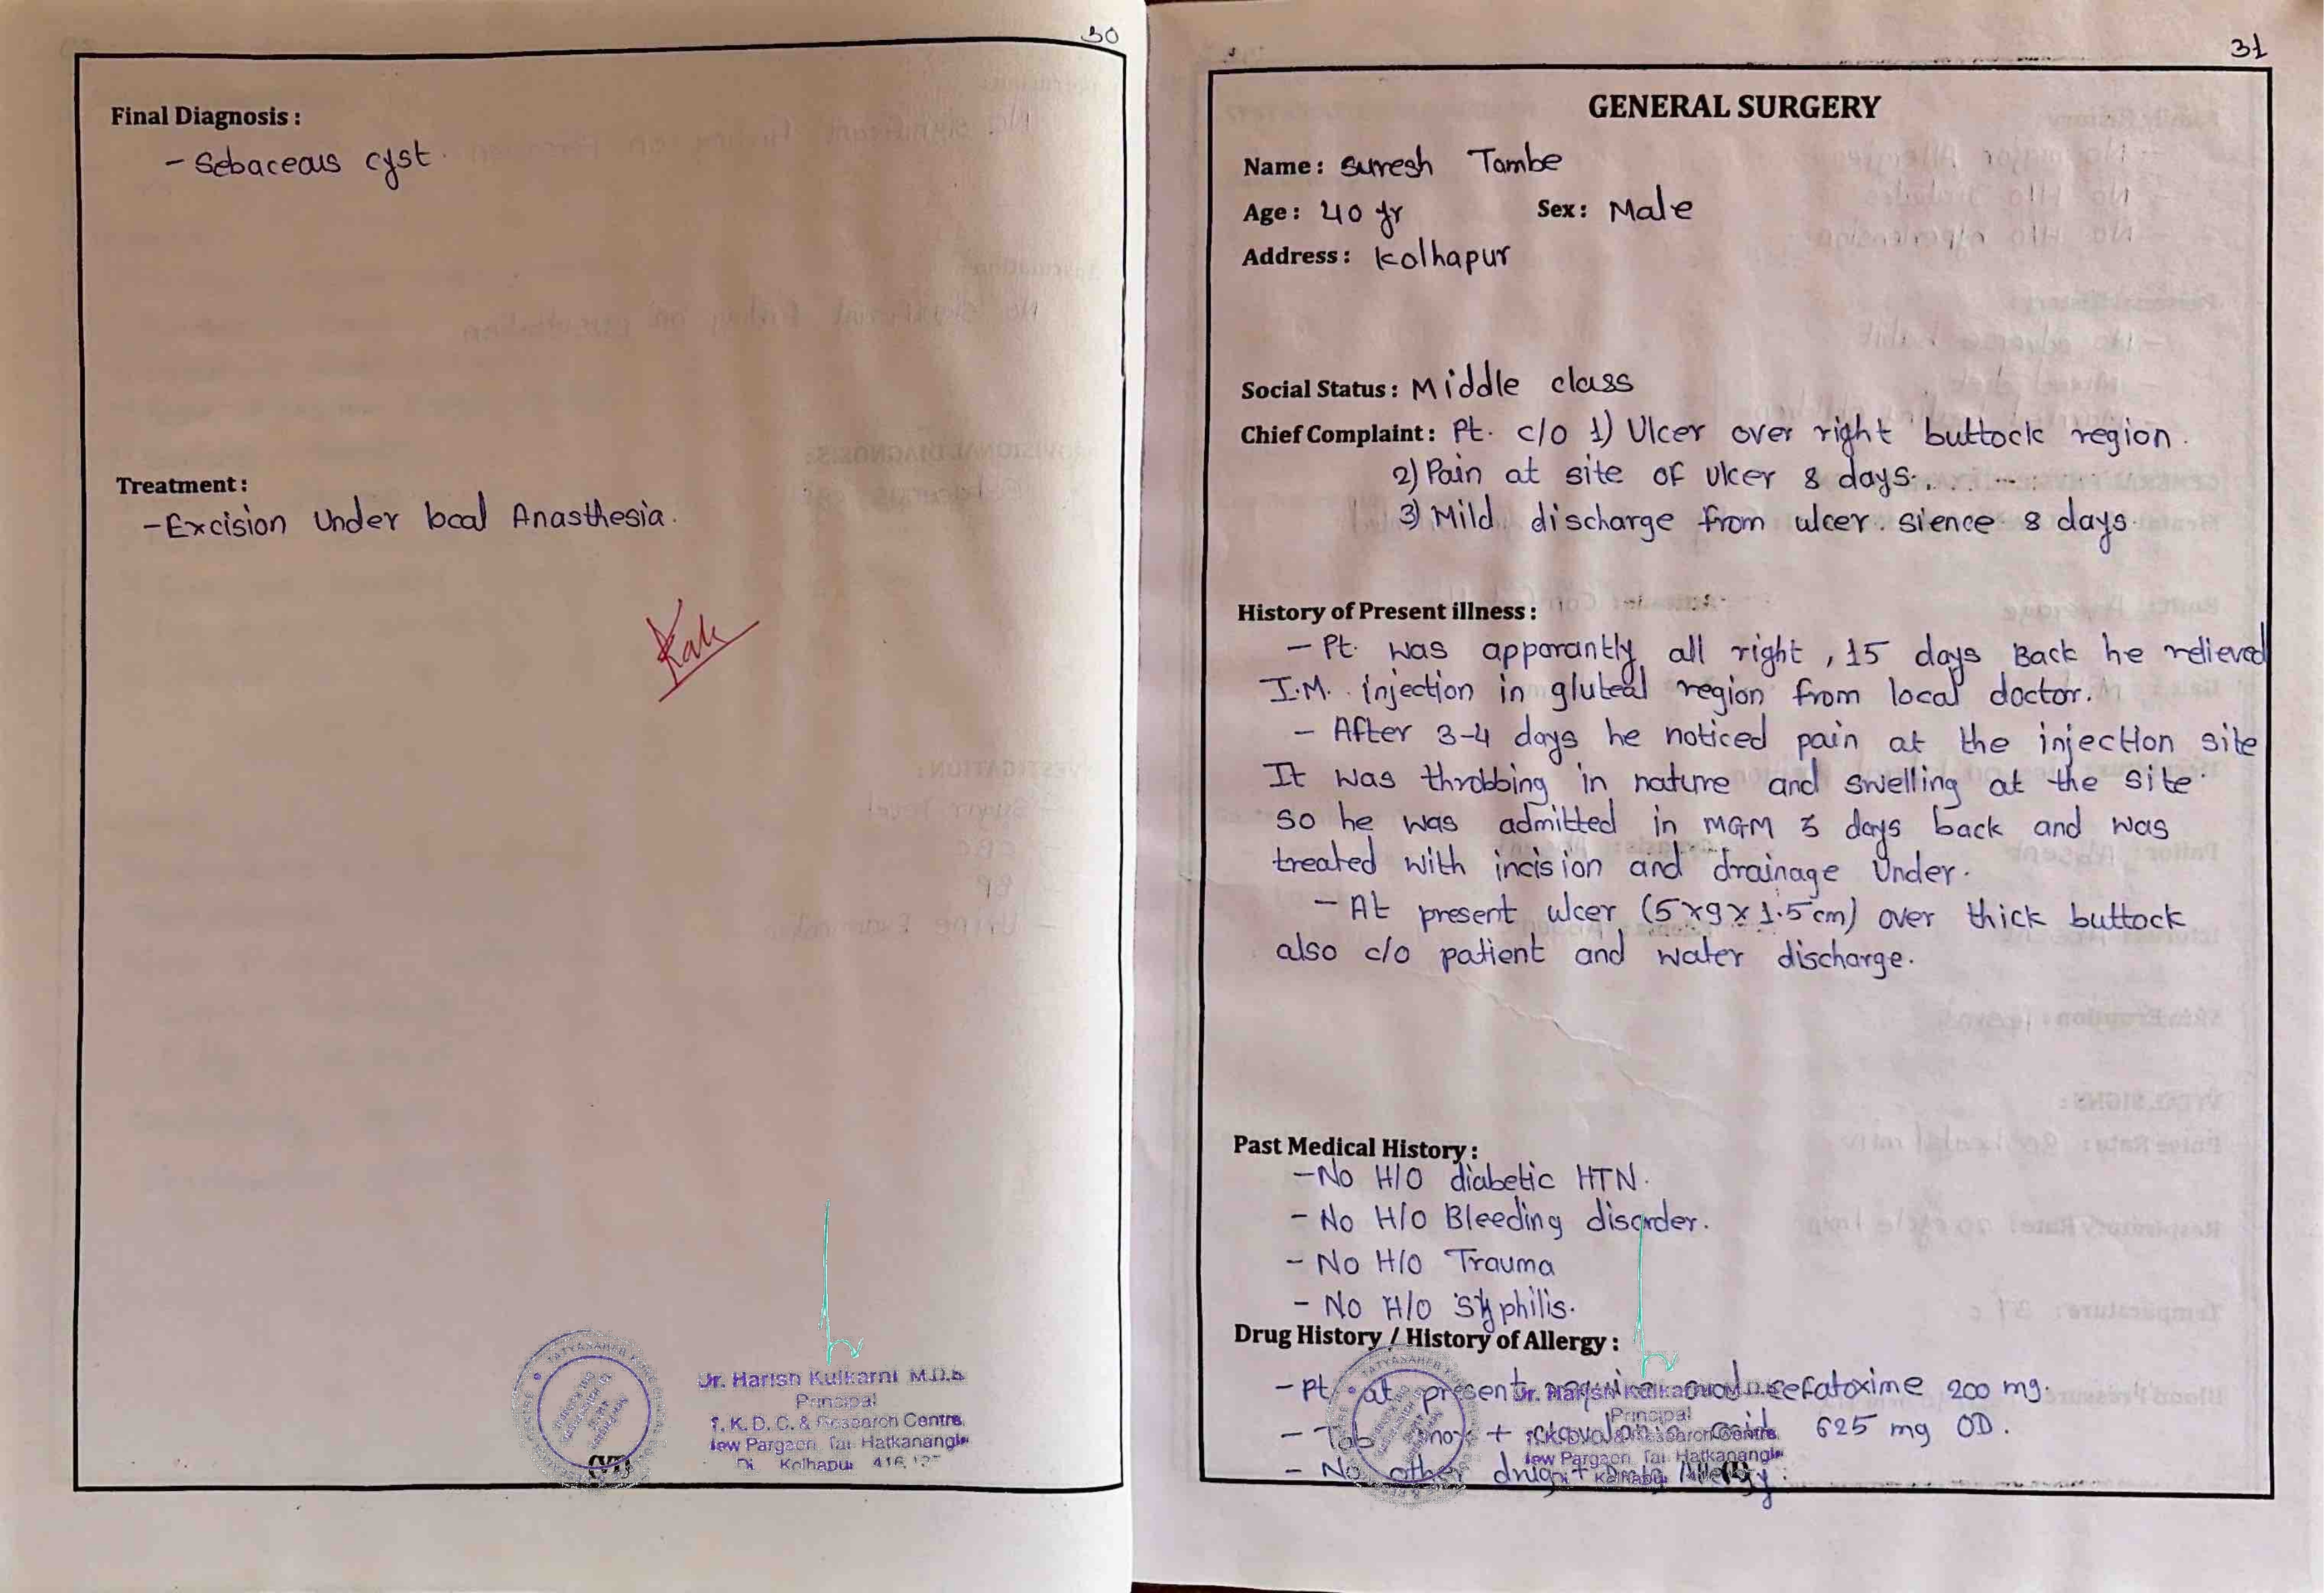 30
Final Diagnosis :
- Sebaceous cyst.
Treatment :
- Excision Under local Anasthesia.
Dr. Harish Kulkarni M.D.S
Principal
T. K. D. C. & Research Centre,
New Pargaon, Tal. Hatkanangle
Di Kolhapur 416 137
(VI)
31
GENERAL SURGERY
Name : Suresh Tambe
Age : 40 yr Sex : Male
Address : Kolhapur
Social Status : Middle class
Chief Complaint : Pt. c/o 1) Ulcer over right buttock region.
2) Pain at site of ulcer 8 days.
3) Mild discharge from ulcer. sience 8 days.
History of Present illness :
- Pt. was apparantly all right, 15 days Back he relieved
I.M. injection in gluteal region from local doctor.
- After 3-4 days he noticed pain at the injection site
It was throbbing in nature and swelling at the site.
so he was admitted in MGM 3 days back and was
treated with incision and drainage Under.
- At present ulcer (5x9x1.5 cm) over thick buttock
also c/o patient and water discharge.
Past Medical History :
- No H/O diabetic HTN.
- No H/O Bleeding disorder.
- No H/O Trauma
- No H/O Syphilis.
Drug History / History of Allergy :
- Pt. at present cefatoxime 200 mg.
- Tab + 625 mg OD.
- No other Allergy.
Dr. Harish Kulkarni M.D.S
Principal
Research Centre,
New Pargaon, Tal. Hatkanangle
Kolhapur